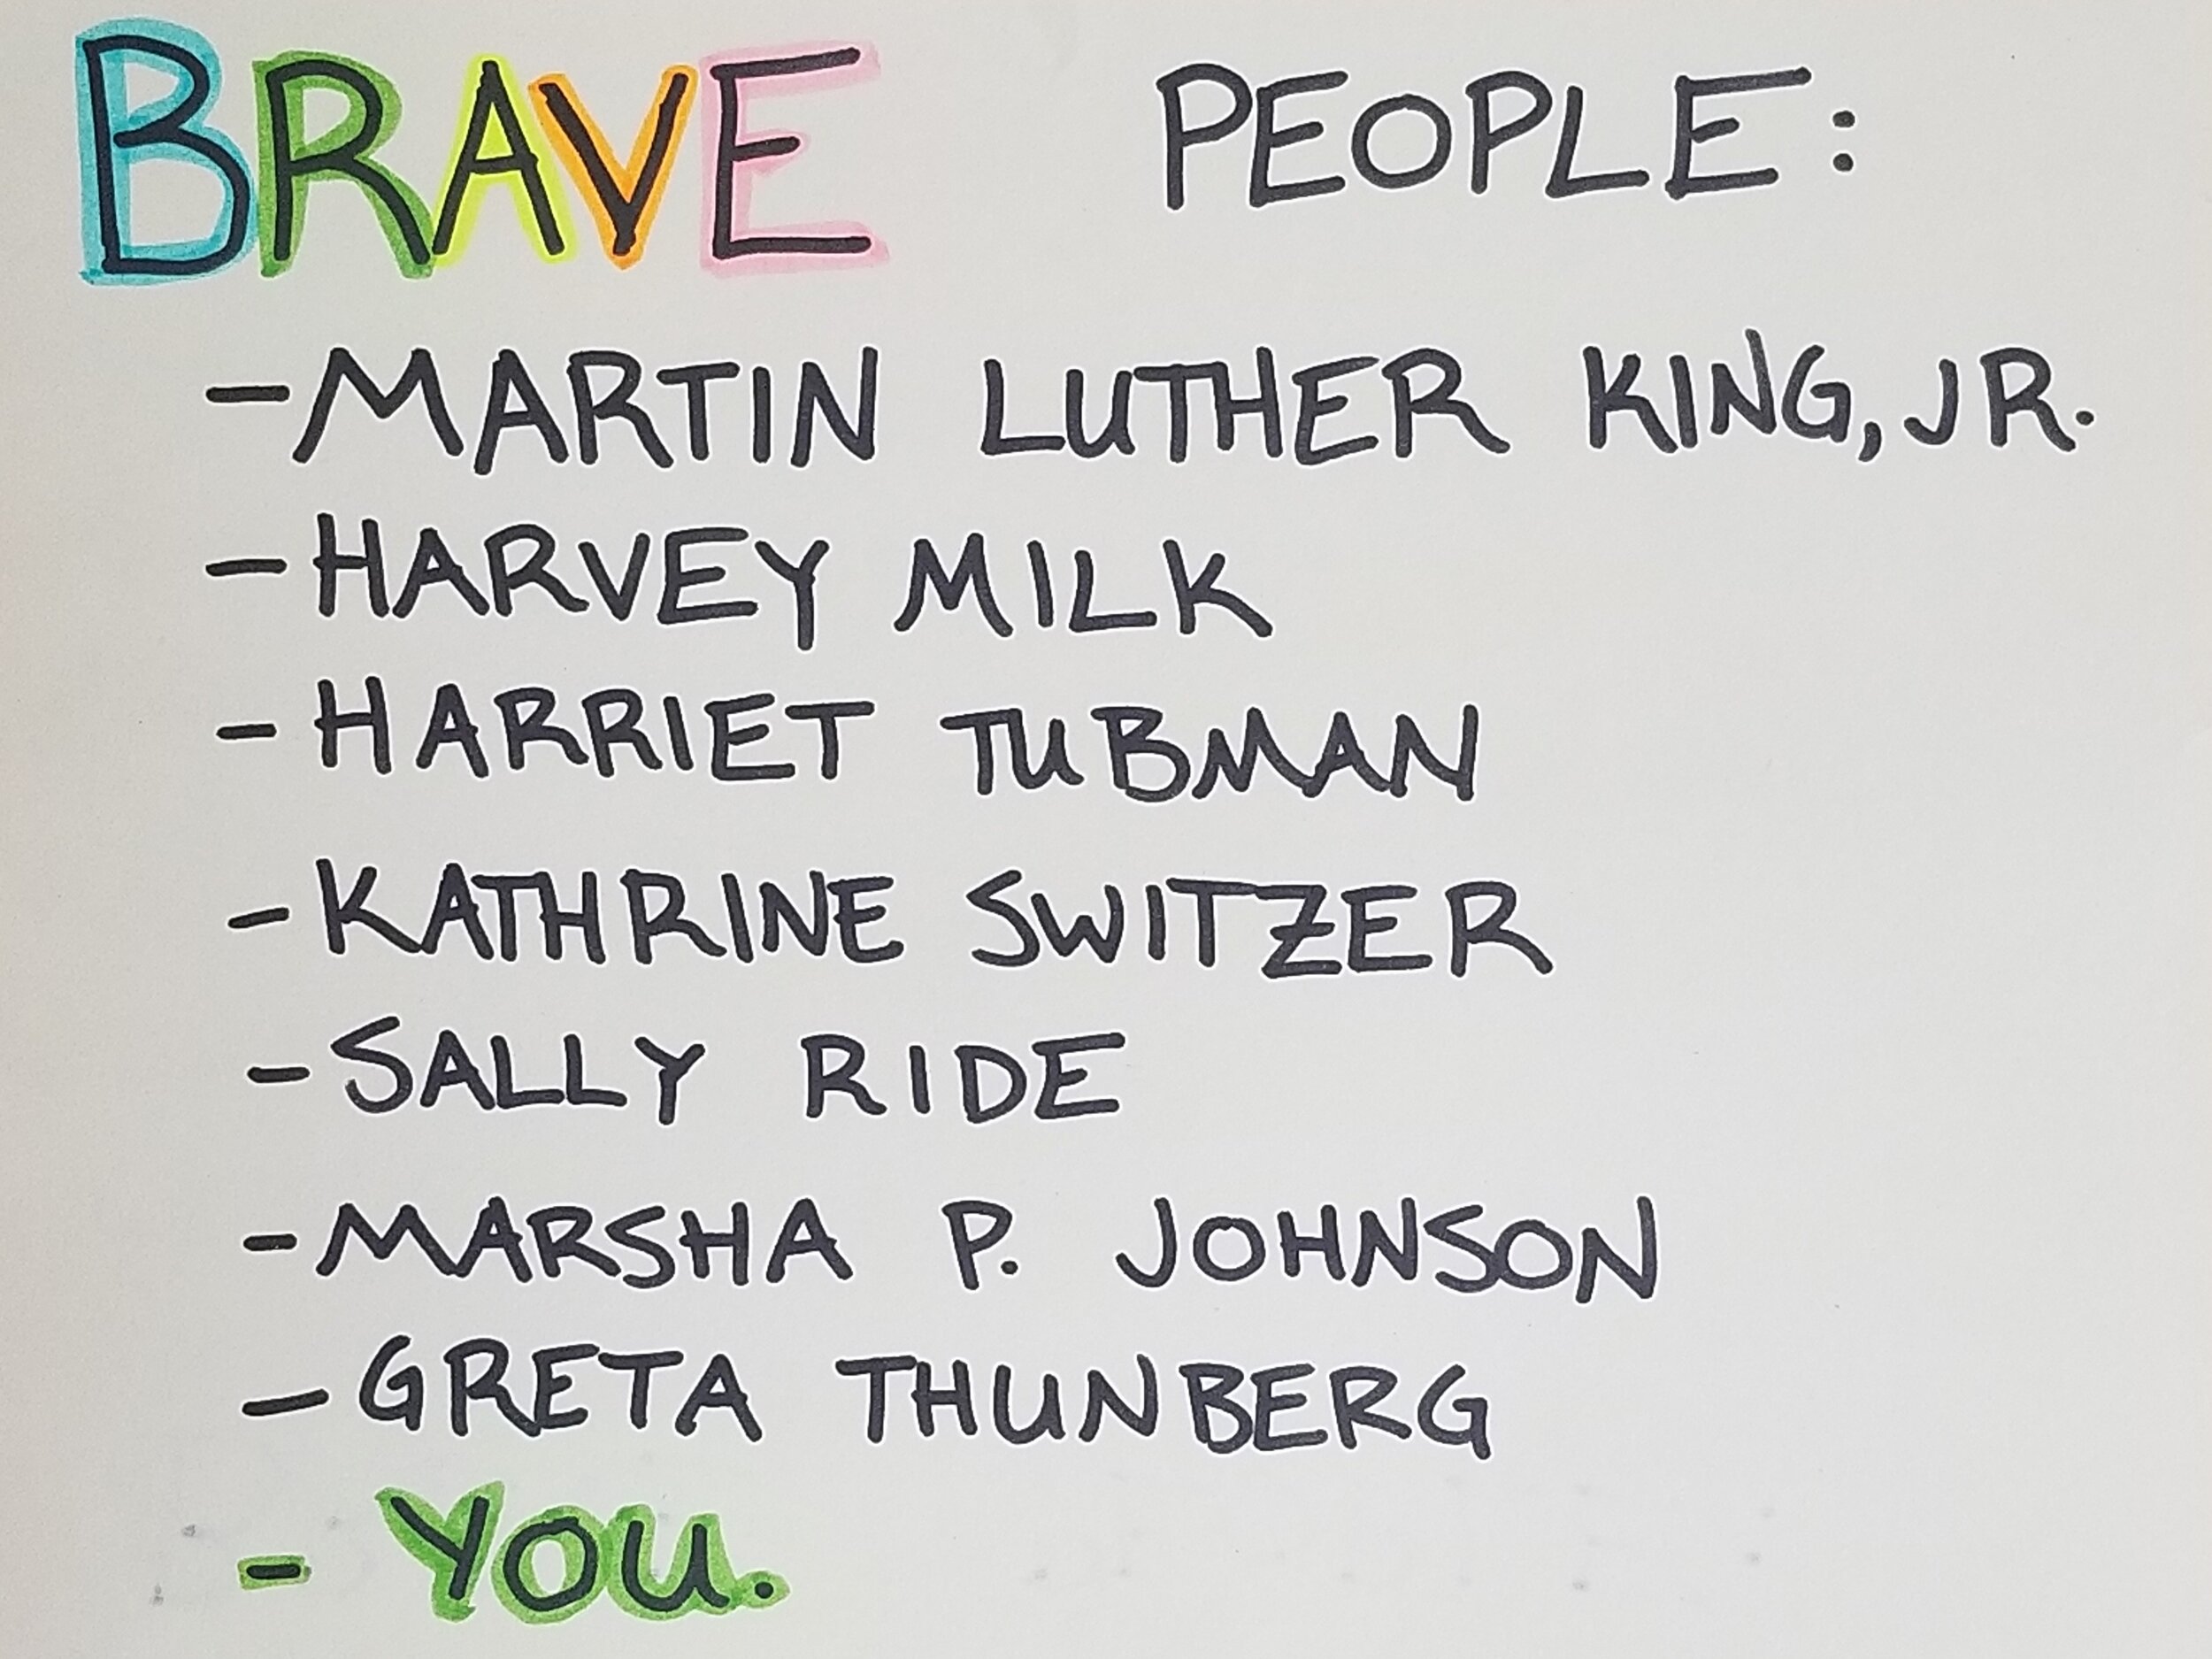 BRAVE PEOPLE:
- MARTIN LUTHER KING, JR.
- HARVEY MILK
- HARRIET TUBMAN
- KATHRINE SWITZER
- SALLY RIDE
- MARSHA P. JOHNSON
- GRETA THUNBERG
- YOU.